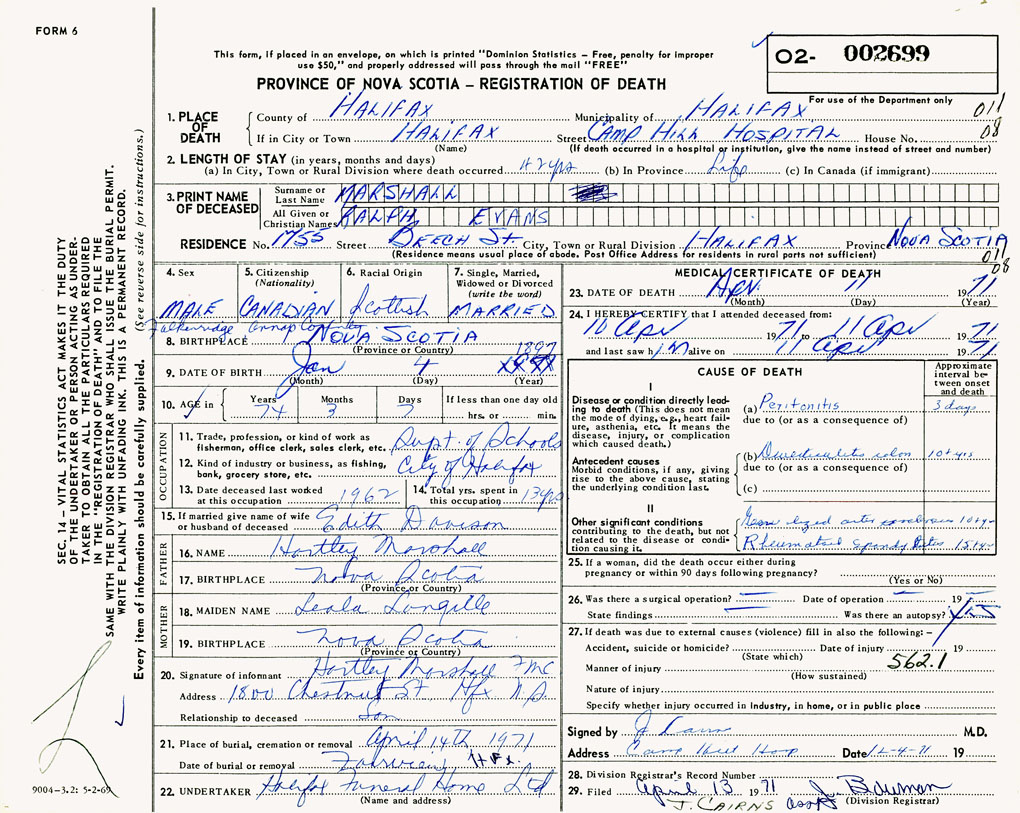 FORM 6
This form, if placed in an envelope, on which is printed "Dominion Statistics – Free, penalty for improper
use $50," and properly addressed will pass through the mail "FREE"
PROVINCE OF NOVA SCOTIA – REGISTRATION OF DEATH
02- 002699
For use of the Department only
011
08
1. PLACE OF DEATH
County of HALIFAX Municipality of HALIFAX
If in City or Town HALIFAX Street CAMP HILL HOSPITAL House No.
(Name) (If death occurred in a hospital or institution, give the name instead of street and number)
2. LENGTH OF STAY (in years, months and days)
(a) In City, Town or Rural Division where death occurred 42 yrs (b) In Province Life (c) In Canada (if immigrant)
3. PRINT NAME OF DECEASED
Surname or Last Name MARSHALL
All Given or Christian Names RALPH EVANS
RESIDENCE No. 1755 Street BEECH St. City, Town or Rural Division HALIFAX Province NOVA SCOTIA
(Residence means usual place of abode. Post Office Address for residents in rural parts not sufficient)
011
08
4. Sex MALE
5. Citizenship (Nationality) CANADIAN
6. Racial Origin Scottish
7. Single, Married, Widowed or Divorced (write the word) MARRIED
8. BIRTHPLACE NOVA SCOTIA
(Province or Country)
1897
9. DATE OF BIRTH Jan 4
(Month) (Day) (Year)
10. AGE in Years 74 Months 3 Days 7 If less than one day old hrs. or min.
OCCUPATION
11. Trade, profession, or kind of work as fisherman, office clerk, sales clerk, etc. Supt. of Schools
12. Kind of industry or business, as fishing, bank, grocery store, etc. City of Halifax
13. Date deceased last worked at this occupation 1962
14. Total yrs. spent in this occupation 13 yrs
15. If married give name of wife or husband of deceased Edith Davison
FATHER
16. NAME Hartley Marshall
17. BIRTHPLACE Nova Scotia
(Province or Country)
MOTHER
18. MAIDEN NAME Leola Longille
19. BIRTHPLACE Nova Scotia
(Province or Country)
20. Signature of informant Hartley Marshall FMC
Address 1800 Chestnut St Hfx N.S.
Relationship to deceased Son
21. Place of burial, cremation or removal April 14th 1971
Date of burial or removal Fairview, Hfx.
22. UNDERTAKER Halifax Funeral Home Ltd
(Name and address)
MEDICAL CERTIFICATE OF DEATH
23. DATE OF DEATH Apr. 11 1971
(Month) (Day) (Year)
24. I HEREBY CERTIFY that I attended deceased from:
10 Apr 1971 to 11 Apr 1971
and last saw him alive on 11 Apr 1971
CAUSE OF DEATH
Approximate interval between onset and death
I
Disease or condition directly leading to death (This does not mean the mode of dying, e.g., heart failure, asthenia, etc. It means the disease, injury, or complication which caused death.)
(a) Peritonitis 3 days
due to (or as a consequence of)
Antecedent causes
Morbid conditions, if any, giving rise to the above cause, stating the underlying condition last.
(b) Diverticulitis colon 10+yrs
due to (or as a consequence of)
(c)
II
Other significant conditions contributing to the death, but not related to the disease or condition causing it.
Generalized arteriosclerosis 10+yr
Rheumatoid Spondylitis 15+yr
25. If a woman, did the death occur either during
pregnancy or within 90 days following pregnancy?
(Yes or No)
26. Was there a surgical operation? – Date of operation – 19
State findings – Was there an autopsy? YES
27. If death was due to external causes (violence) fill in also the following: –
Accident, suicide or homicide? Date of injury 19
(State which) 562.1
Manner of injury
(How sustained)
Nature of injury
Specify whether injury occurred in industry, in home, or in public place
Signed by M.D.
Address Camp Hill Hosp Date 12-4-71 19
28. Division Registrar's Record Number
29. Filed April 13 1971 J. Bowman
J. CAIRNS (Division Registrar)
SEC. 14 – VITAL STATISTICS ACT MAKES IT THE DUTY
OF THE UNDERTAKER OR PERSON ACTING AS UNDERTAKER TO OBTAIN ALL THE PARTICULARS REQUIRED
IN THE "REGISTRATION OF DEATH" AND TO FILE THE
SAME WITH THE DIVISION REGISTRAR WHO SHALL ISSUE THE BURIAL PERMIT.
WRITE PLAINLY WITH UNFADING INK. THIS IS A PERMANENT RECORD.
Every item of information should be carefully supplied. (See reverse side for instructions.)
9004-3.2: 5-2-69